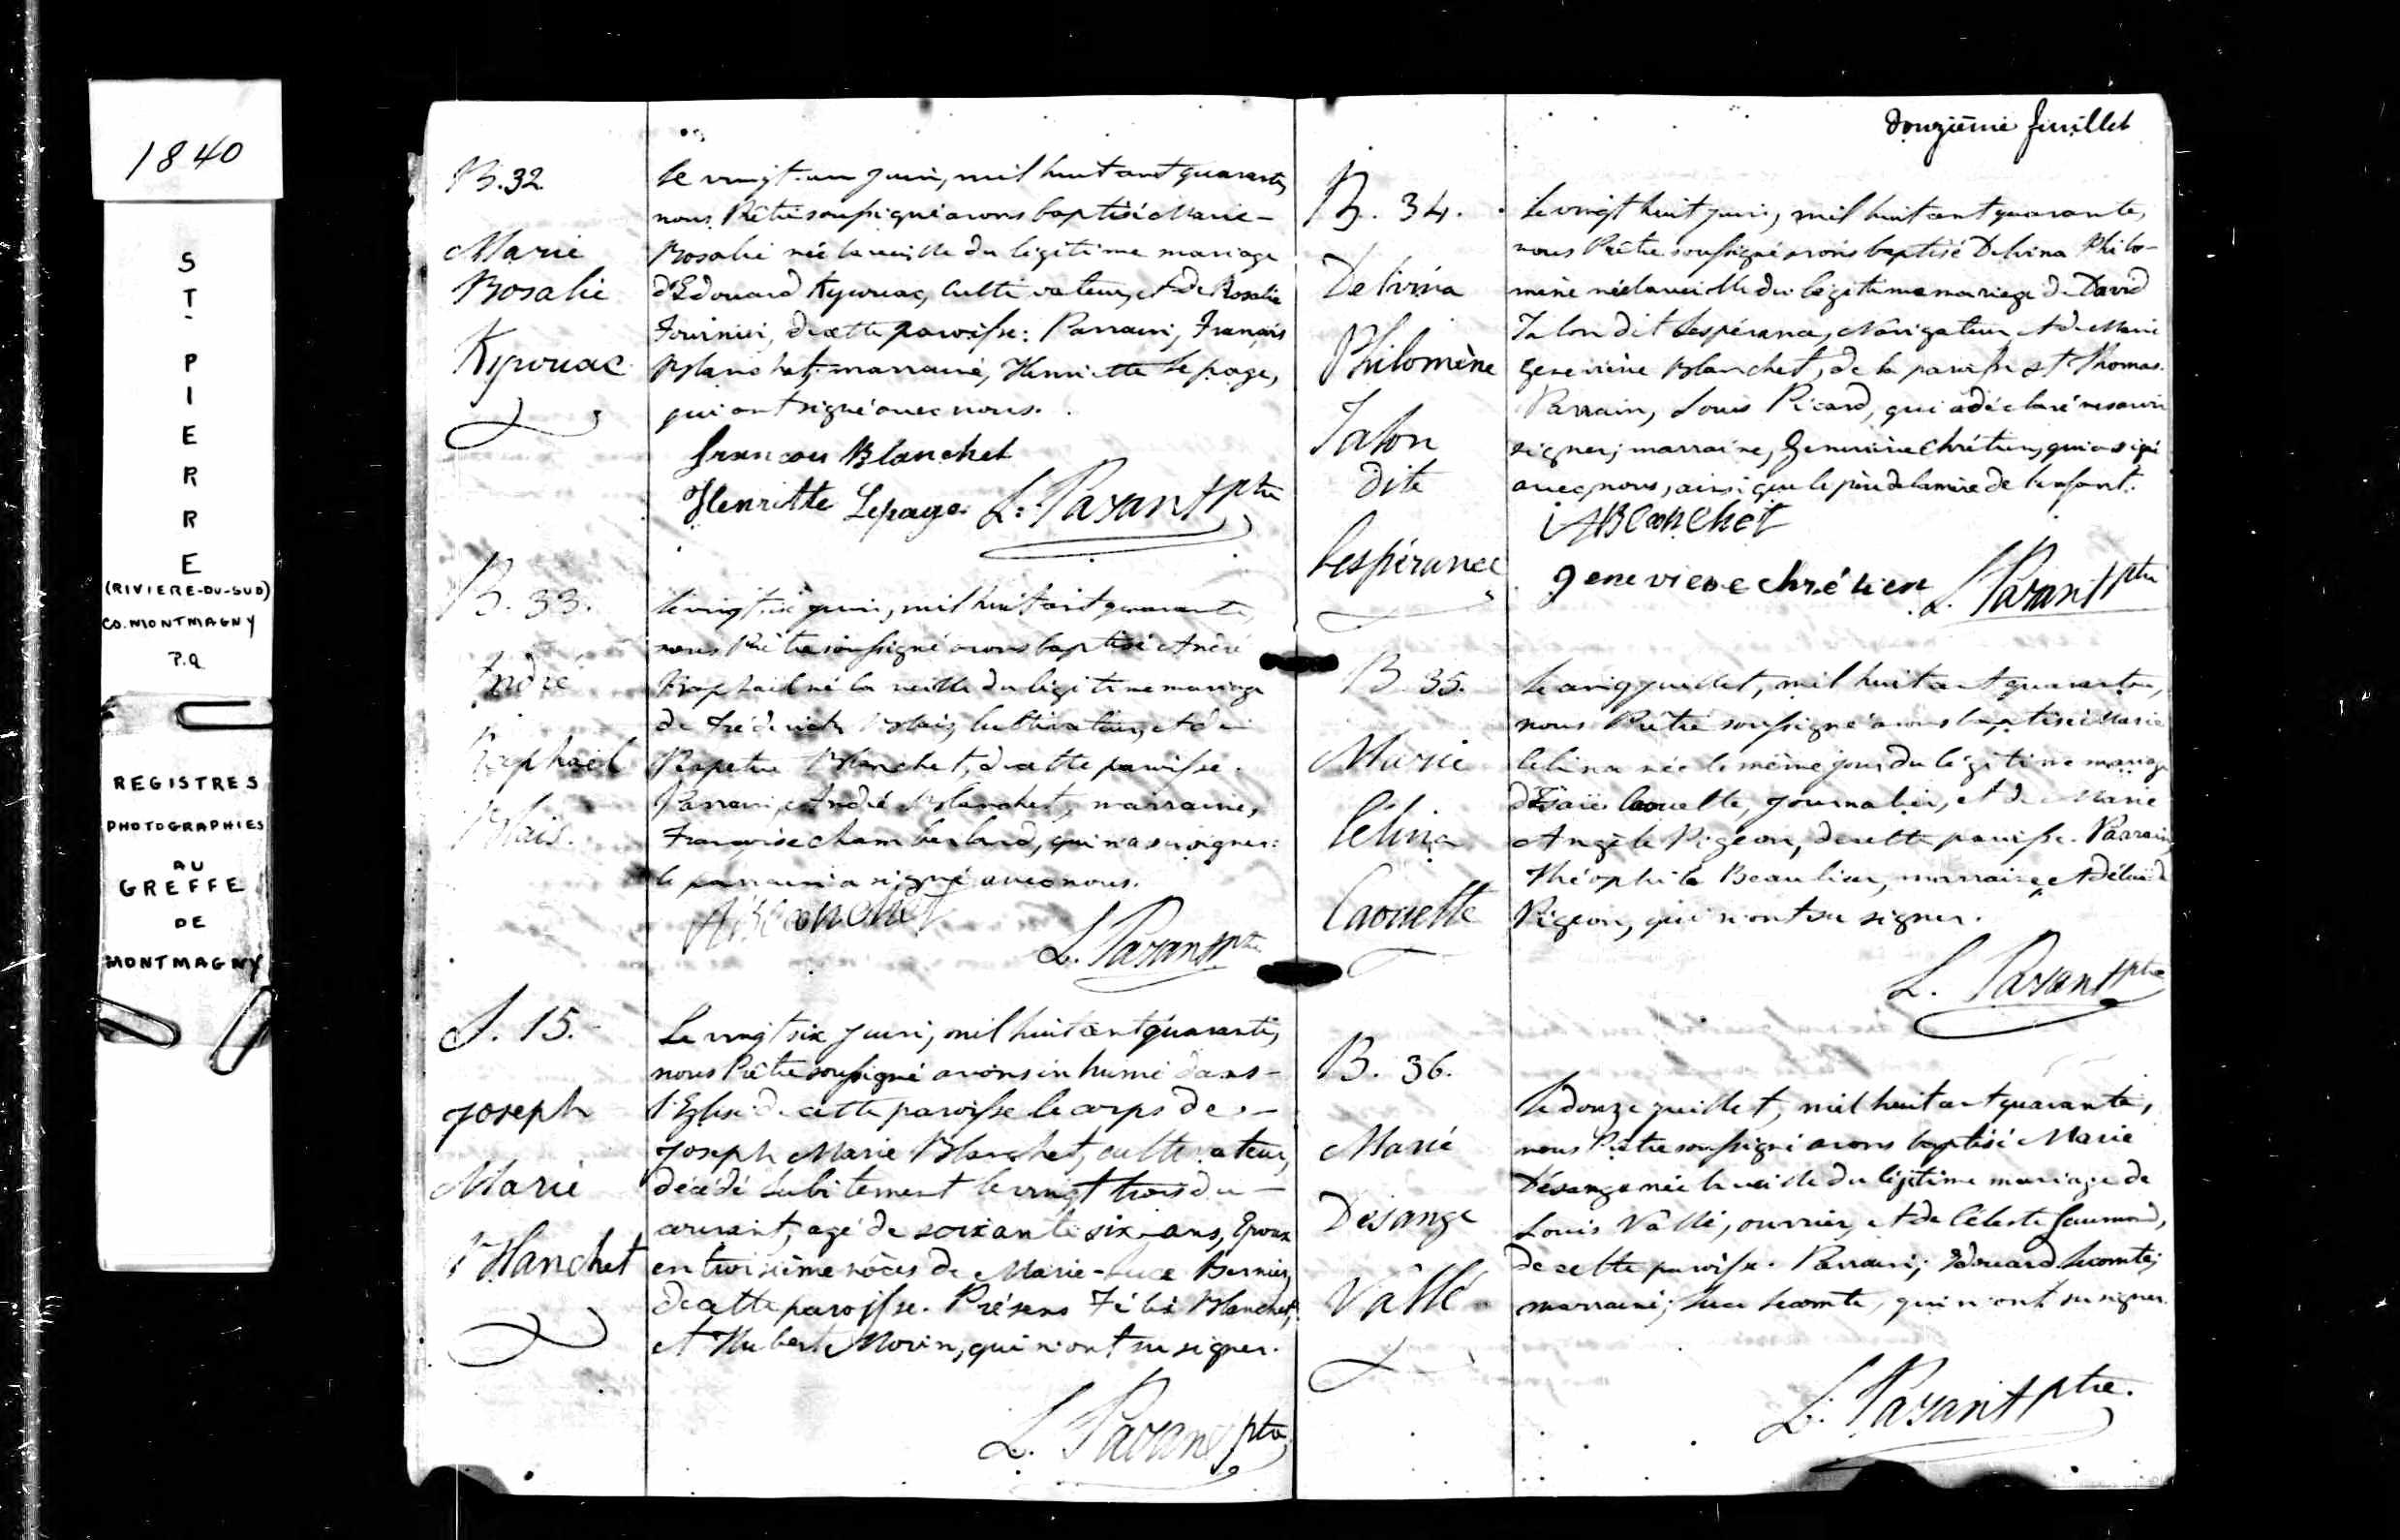 1840
ST. PIERRE
(RIVIERE-DU-SUD)
CO. MONTMAGNY
P.Q
REGISTRES
PHOTOGRAPHIES
AU
GREFFE
DE
MONTMAGNY
B. 32.
Marie
Rosalie
Kyrouac
Le vingt-un juin, mil huit cent quarante,
nous Prêtre soussigné avons baptisé Marie-
Rosalie née la veille du légitime mariage
d'Edouard Kyrouac, Cultivateur, et de Rosalie
Fournier, de cette paroisse: Parrain, François
Blanchet; marraine, Henriette Lepage,
qui ont signé avec nous.
francois Blanchet
Henriette Lepage L. Parant ptre
B. 33.
André
Raphaël
Blais.
Le vingt six juin, mil huit cent quarante,
nous Prêtre soussigné avons baptisé André
Raphaël né la veille du légitime mariage
de Fréderick Blais, Cultivateur, et de
Blanchet, de cette paroisse.
Parrain, André Blanchet, marraine,
Françoise Chamberland, qui n'a su signer:
le parrain a signé avec nous.
ABlanchet
L. Parant ptre
S. 15.
Joseph
Marie
Blanchet
Le vingt six juin, mil huit cent quarante,
nous Prêtre soussigné avons inhumé dans-
l'Eglise de cette paroisse le corps de -
Joseph Marie Blanchet, cultivateur,
décédé subitement le vingt trois du -
courant, agé de soixante six-ans, Epoux
en troisième nôces de Marie-Luce Bernier,
de cette paroisse. Présens Félix Blanchet,
et Hubert Morin, qui n'ont su signer.
L. Parant ptre
Douzième feuillet
B. 34.
Delvina
Philomène
Talon
dite
Lespérance
Le vingt huit juin, mil huit cent quarante,
nous Prêtre soussigné avons baptisé Delvina Philo-
mène née la veille du légitime mariage de David
Talon dit Lespérance, Navigateur, et de Marie
Geneviève Blanchet, de la paroisse St Thomas.
Parrain, Louis Picard, qui a déclaré ne savoir
signer; marraine, Geneviève Chrétien, qui a signé
avec nous, ainsi que le père de la mère de l'enfant.
ABlanchet
genevieve chrétien L. Parant ptre
B. 35.
Marie
Célina
Caouette
Le cinq juillet, mil huit cent quarante,
nous Prêtre soussigné avons baptisé Marie
Célina née le même jour du légitime mariage
d'Isaïe Caouette, Journalier, et de Marie
Angèle Pigeon, de cette paroisse. Parrain,
Théophile Beaulieu, marraine, Adélaïde
Pigeon, qui n'ont su signer.
L. Parant ptre
B. 36.
Marie
Désange
Vallé
Le douze juillet, mil huit cent quarante,
nous Prêtre soussigné avons baptisé Marie
Désange née la veille du légitime mariage de
Louis Vallé, ouvrier, et de Céleste Gaumond,
de cette paroisse. Parrain; Edouard Lecomte;
marraine; Luce Lecomte, qui n'ont su signer.
L. Parant ptre.